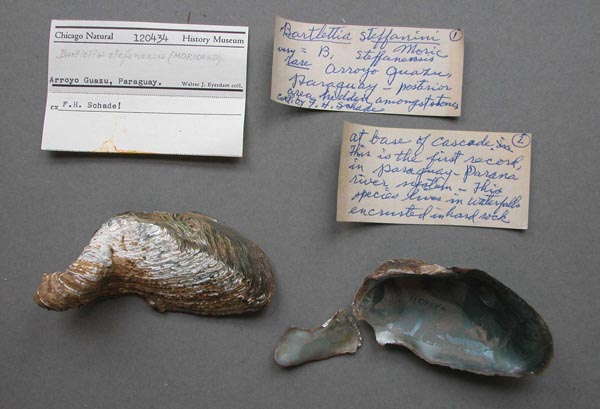 Chicago Natural 120434 History Museum
Bartlettia stefanensis (MORICAND)
Arroyo Guazu, Paraguay. Walter J. Eyerdam coll.
ex F.H. Schade!
Bartlettia steffanini 1
very = B. steffanensis Moric
rare Arroyo Guazu,
Paraguay - posterior
area hidden amongst stones
coll. by F. H. Schade
2
at base of cascade
This is the first record
in Paraguay-Parana
river system - This
species lives in waterfalls
encrusted in hard rock